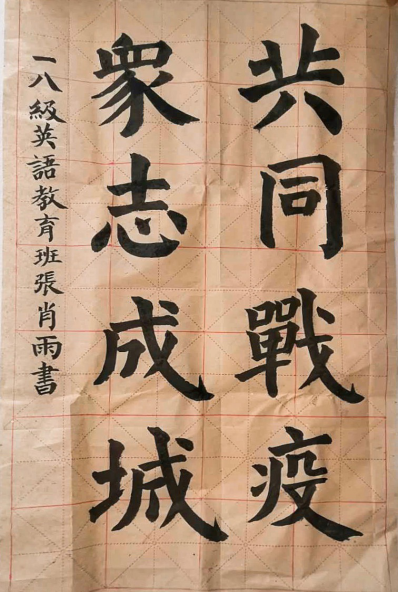 共同戰疫
衆志成城
一八級英語教育班張肖雨書